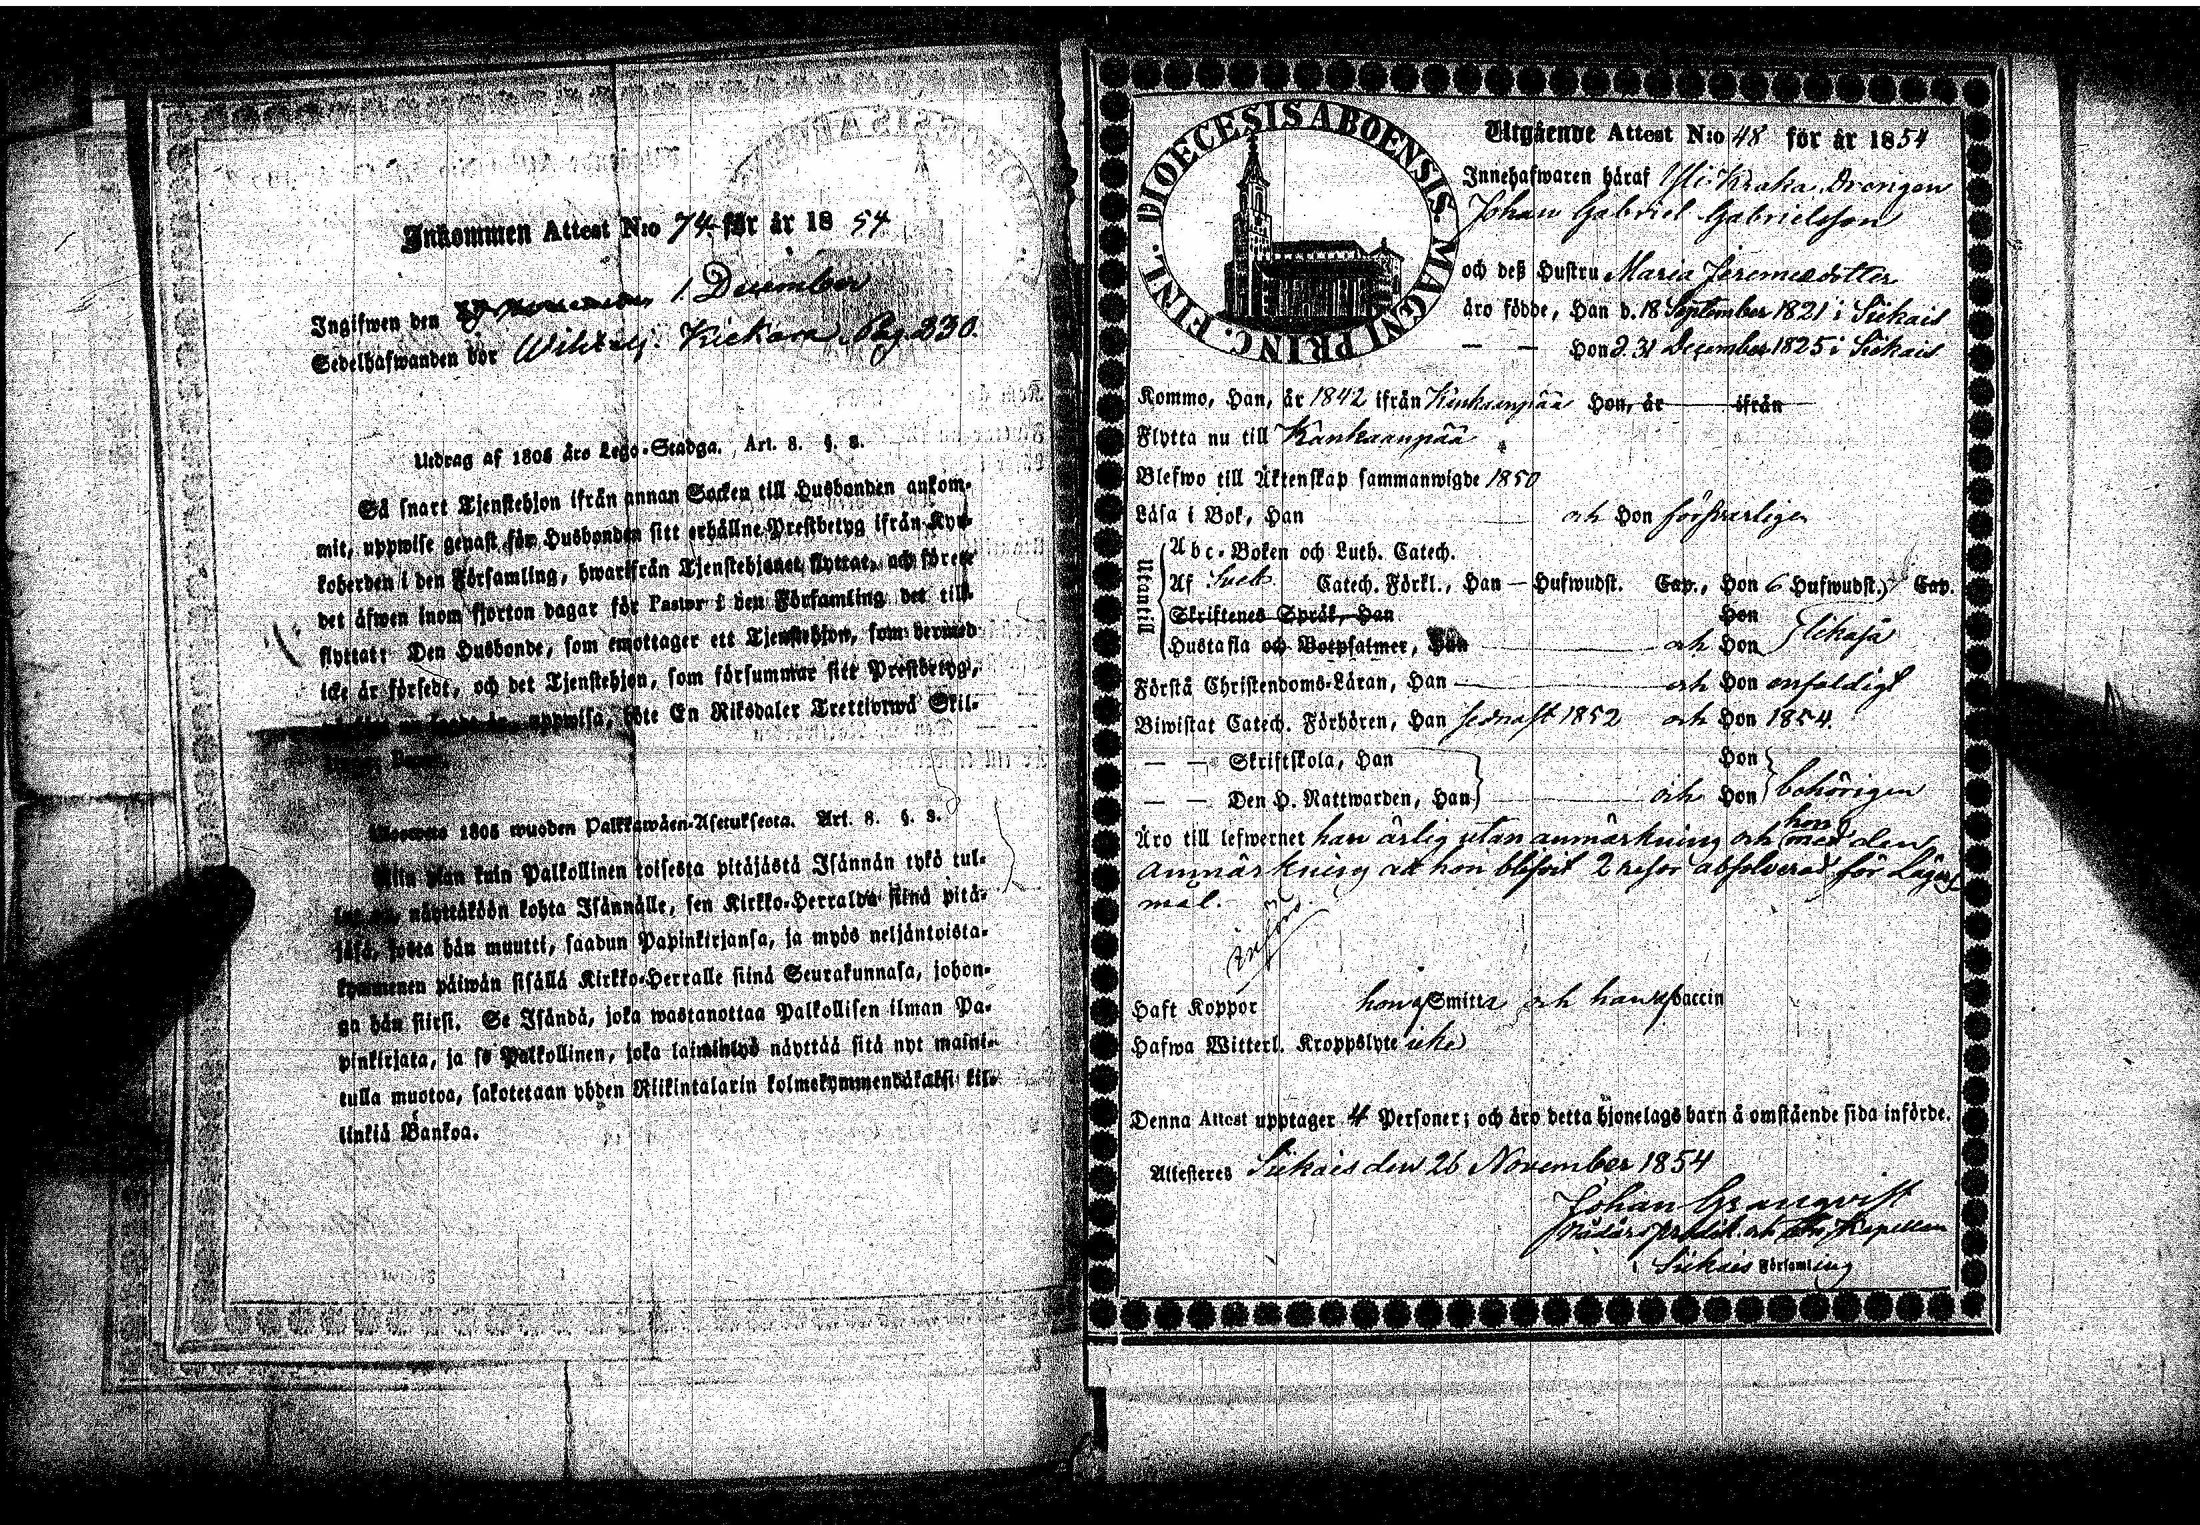 Inkommen Attest N:o 74 för år 1854
Ingifwen den 1 December
Sedelhafwanden bor Kickara Pag. 330.
Utdrag af 1805 års Lego-Stadga. Art. 8. §. 8.
Så snart Tjenstehjon ifrån annan Socken till Husbonden ankom-
mit, uppwise genast för Husbonden sitt erhållne Prestbetyg ifrån Kyr-
koherden i den Församling, hwarifrån Tjenstehjonet flyttat, och förete
det äfwen inom fjorton dagar för Pastor i den Församling det till-
flyttat: Den Husbonde, som emottager ett Tjenstehjon, som dermed
icke är försedt, och det Tjenstehjon, som försummar sitt Prestbetyg,
uppwisa, böte En Riksdaler Trettiotwå Skil-
1805 wuoden Palkkawäen-Asetuksesta. Art. 8. §. 8.
Niin pian kuin Palkollinen toisesta pitäjästä Isännän tykö tul-
näyttäköön kohta Isännälle, sen Kirkko-Herralda siinä pitä-
jäsä, josta hän muutti, saadun Papinkirjansa, ja myös neljäntoista-
kymmenen päiwän sisällä Kirkko-Herralle siinä Seurakunnasa, johon-
ga hän siirsi. Se Isändä, joka wastanottaa Palkollisen ilman Pa-
pinkirjata, ja se Palkollinen, joka laiminlyö näyttää sitä nyt maini-
tulla muotoa, sakotetaan yhden Riikintalarin kolmekymmendäkaksi kil-
linkiä Bankoa.
DIOECESIS ABOENSIS. MAGNI PRINC. FINL.
Utgående Attest N:o 48 för år 1854
Innehafwaren häraf Yli Kraka Drengen
Johan Gabriel Gabrielsson
och deß Hustru Maria Jeremiedotter
äro födde, Han d. 18 September 1821 i Siikais
— — Hon d. 31 December 1825 i Siikais
Kommo, Han, år 1842 ifrån Kankaanpää Hon, år ifrån
Flytta nu till Kankaanpää
Blefwo till Äktenskap sammanwigde 1850
Läsa i Bok, Han och Hon försvarligen
Utantill
Abc-Boken och Luth. Catech.
Af Sveb. Catech. Förkl., Han — Hufwudst. Cap., Hon 6 Hufwudst. Cap.
Skriftenes Språk, Han Hon
Hustafla och Botpsalmer, Han och Hon likaså
Förstå Christendoms-Läran, Han och Hon enfaldigt
Biwistat Catech. Förhören, Han sednast 1852 och Hon 1854.
— — Skriftskola, Han Hon
— — Den H. Nattwarden, Han och Hon behörigen
Äro till lefwernet han ärlig utan anmärkning och hon med den
anmärkning att hon blifvit 2 resor absolverad för Lägers-
mål.
införd
Haft Koppor hon Smitta och han Vaccin
Hafwa Witterl. Kroppslyte icke
Denna Attest upptager 4 Personer; och äro detta hjonelags barn å omstående sida införde.
Attesteres Siikais den 26 November 1854
Johan Granqvist
Nådårspredik. och Kapellan
i Siikais Församling